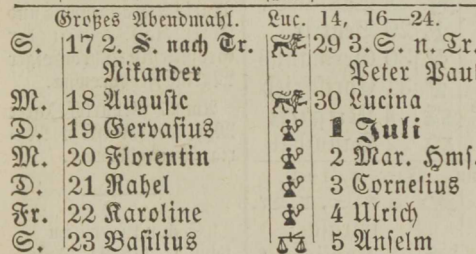 Großes Abendmahl. Luc. 14, 16—24.
S. 17 2. S. nach Tr. 29 3. S. n. Tr.
Nikander Peter Paul
M. 18 Auguste 30 Lucina
D. 19 Gervasius 1 Juli
M. 20 Florentin 2 Mar. Hms.
D. 21 Rahel 3 Cornelius
Fr. 22 Karoline 4 Ulrich
S. 23 Basilius 5 Anselm